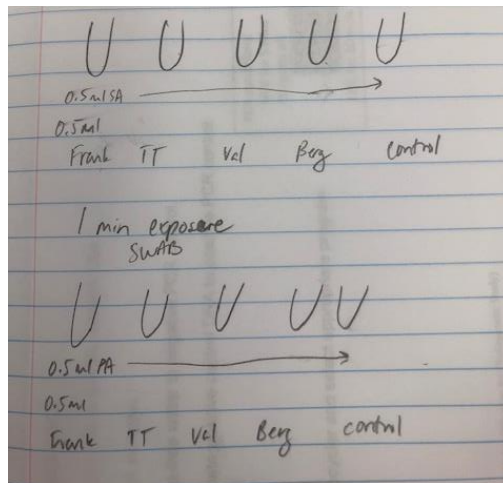 0.5ml SA
0.5ml
Frank TT Val Berg control
1 min exposure
SWAB
0.5ml PA
0.5ml
Frank TT Val Berg control